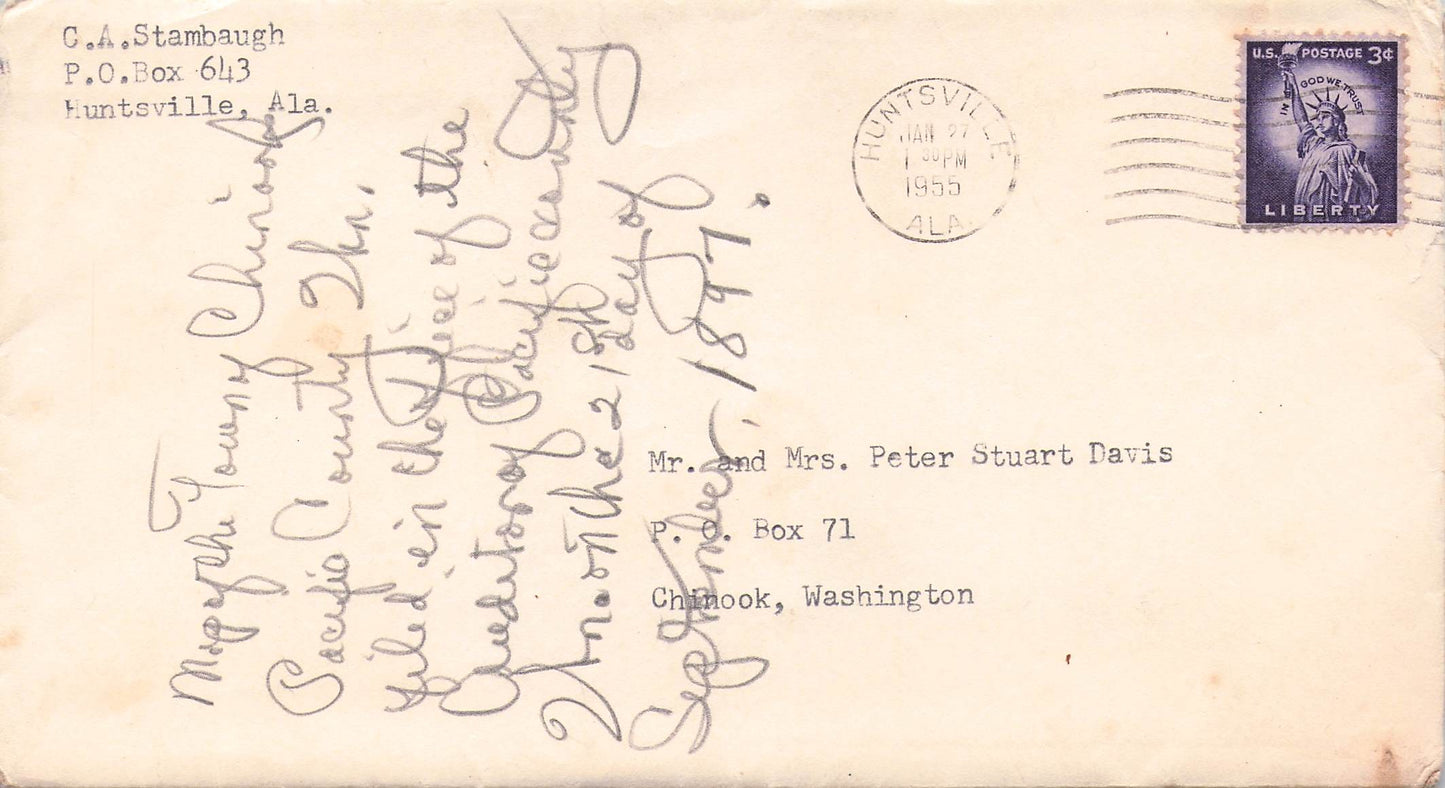 C.A.Stambaugh
P.O.Box 643
Huntsville, Ala.
HUNTSVILLE
JAN 27
1 30PM
1955
ALA.
U.S. POSTAGE 3¢
IN GOD WE TRUST
LIBERTY
Mr. and Mrs. Peter Stuart Davis
P. O. Box 71
Chinook, Washington
Map of the Town of Chinook
Pacific County Wn.
Filed in the office of the
Auditor of Pacific County
Wn on the 21st day of
September. 1897.